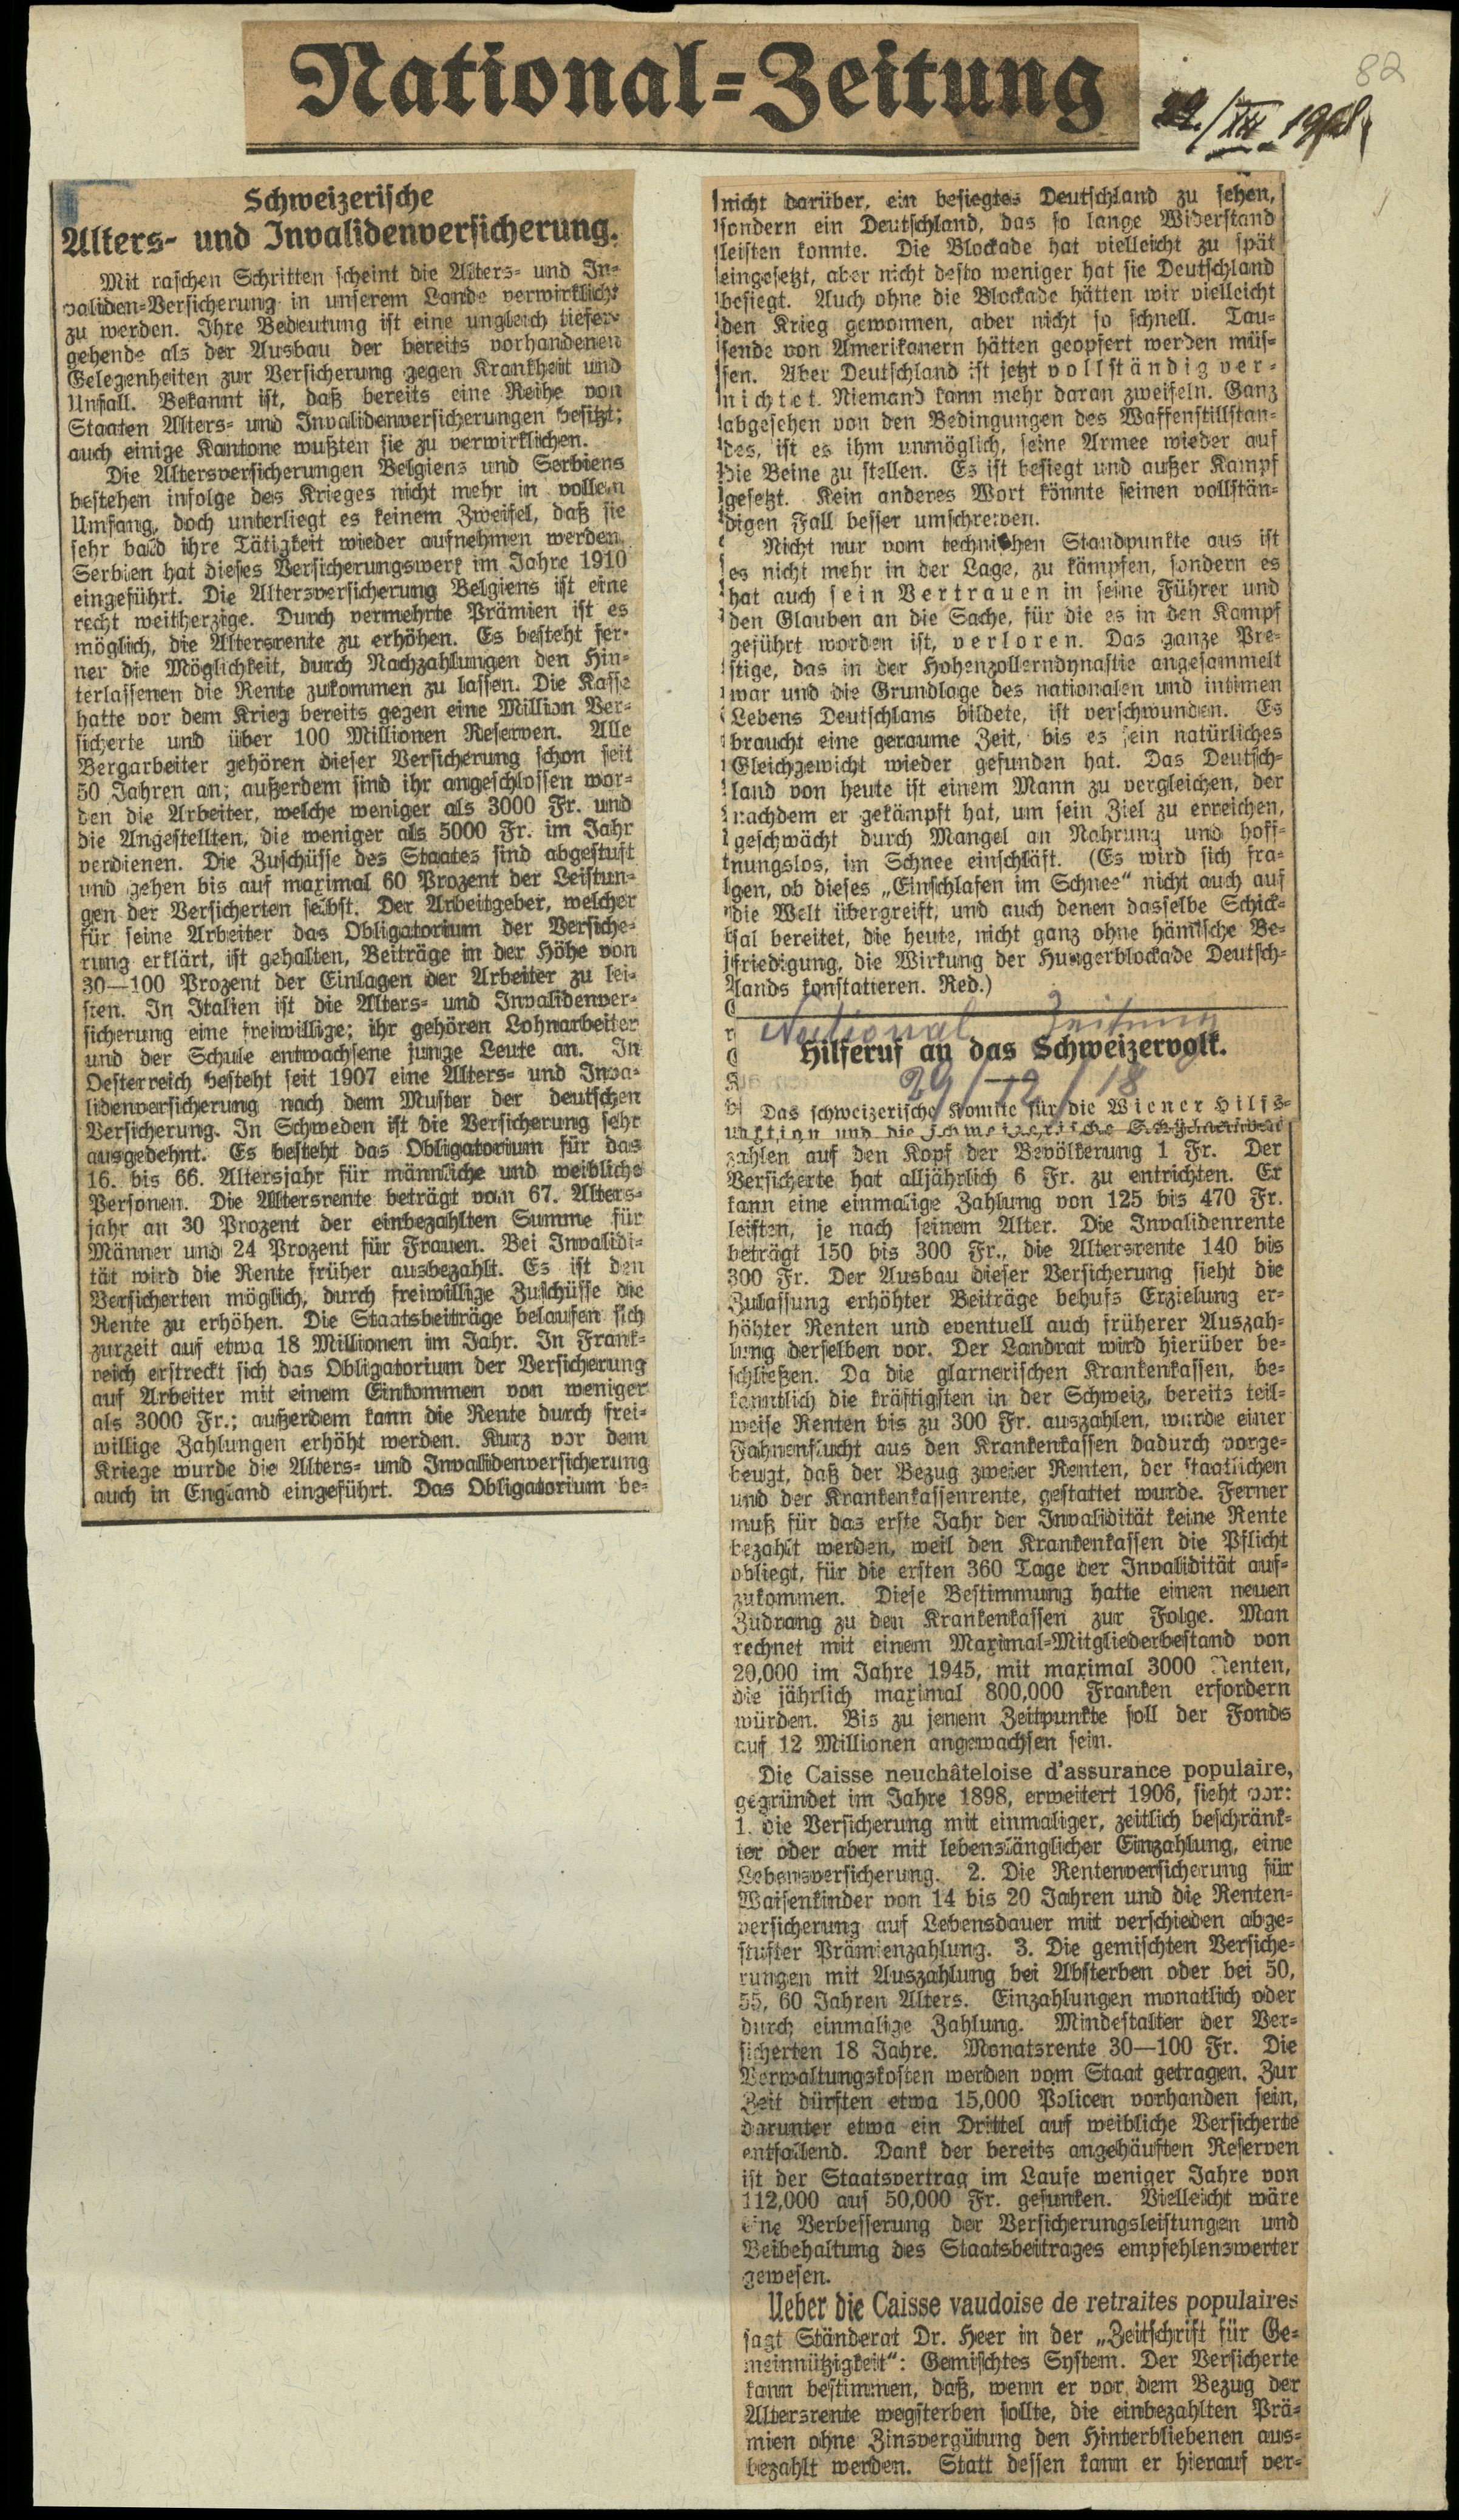 National-Zeitung
29./XII. 1918.
82
Schweizerische
Alters- und Invalidenversicherung.
Mit raschen Schritten scheint die Alters- und In-
validen-Versicherung in unserem Lande verwirklicht
zu werden. Ihre Bedeutung ist eine ungleich tiefer-
gehende als der Ausbau der bereits vorhandenen
Gelegenheiten zur Versicherung gegen Krankheit und
Unfall. Bekannt ist, daß bereits eine Reihe von
Staaten Alters- und Invalidenversicherungen besitzt;
auch einige Kantone wußten sie zu verwirklichen.
Die Altersversicherungen Belgiens und Serbiens
bestehen infolge des Krieges nicht mehr in vollem
Umfang, doch unterliegt es keinem Zweifel, daß sie
sehr bald ihre Tätigkeit wieder aufnehmen werden.
Serbien hat dieses Versicherungswerk im Jahre 1910
eingeführt. Die Altersversicherung Belgiens ist eine
recht weitherzige. Durch vermehrte Prämien ist es
möglich, die Altersrente zu erhöhen. Es besteht fer-
ner die Möglichkeit, durch Nachzahlungen den Hin-
terlassenen die Rente zukommen zu lassen. Die Kasse
hatte vor dem Krieg bereits gegen eine Million Ver-
sicherte und über 100 Millionen Reserven. Alle
Bergarbeiter gehören dieser Versicherung schon seit
50 Jahren an; außerdem sind ihr angeschlossen wor-
den die Arbeiter, welche weniger als 3000 Fr. und
die Angestellten, die weniger als 5000 Fr. im Jahr
verdienen. Die Zuschüsse des Staates sind abgestuft
und gehen bis auf maximal 60 Prozent der Leistun-
gen der Versicherten selbst. Der Arbeitgeber, welcher
für seine Arbeiter das Obligatorium der Versiche-
rung erklärt, ist gehalten, Beiträge in der Höhe von
30—100 Prozent der Einlagen der Arbeiter zu lei-
sten. In Italien ist die Alters- und Invalidenver-
sicherung eine freiwillige; ihr gehören Lohnarbeiter
und der Schule entwachsene junge Leute an. In
Oesterreich besteht seit 1907 eine Alters- und Inva-
lidenversicherung nach dem Muster der deutschen
Versicherung. In Schweden ist die Versicherung sehr
ausgedehnt. Es besteht das Obligatorium für das
16. bis 66. Altersjahr für männliche und weibliche
Personen. Die Altersrente beträgt vom 67. Alters-
jahr an 30 Prozent der einbezahlten Summe für
Männer und 24 Prozent für Frauen. Bei Invalidi-
tät wird die Rente früher ausbezahlt. Es ist den
Versicherten möglich, durch freiwillige Zuschüsse die
Rente zu erhöhen. Die Staatsbeiträge belaufen sich
zurzeit auf etwa 18 Millionen im Jahr. In Frank-
reich erstreckt sich das Obligatorium der Versicherung
auf Arbeiter mit einem Einkommen von weniger
als 3000 Fr.; außerdem kann die Rente durch frei-
willige Zahlungen erhöht werden. Kurz vor dem
Kriege wurde die Alters- und Invalidenversicherung
auch in England eingeführt. Das Obligatorium be-
nicht darüber, ein besiegtes Deutschland zu sehen,
sondern ein Deutschland, das so lange Widerstand
leisten konnte. Die Blockade hat vielleicht zu spät
eingesetzt, aber nicht desto weniger hat sie Deutschland
besiegt. Auch ohne die Blockade hätten wir vielleicht
den Krieg gewonnen, aber nicht so schnell. Tau-
sende von Amerikanern hätten geopfert werden müs-
sen. Aber Deutschland ist jetzt vollständig ver-
nichtet. Niemand kann mehr daran zweifeln. Ganz
abgesehen von den Bedingungen des Waffenstillstan-
des, ist es ihm unmöglich, seine Armee wieder auf
die Beine zu stellen. Es ist besiegt und außer Kampf
gesetzt. Kein anderes Wort könnte seinen vollstän-
digen Fall besser umschreiben.
Nicht nur vom technischen Standpunkte aus ist
es nicht mehr in der Lage, zu kämpfen, sondern es
hat auch sein Vertrauen in seine Führer und
den Glauben an die Sache, für die es in den Kampf
geführt worden ist, verloren. Das ganze Pre-
stige, das in der Hohenzollerndynastie angesammelt
war und die Grundlage des nationalen und intimen
Lebens Deutschlans bildete, ist verschwunden. Es
braucht eine geraume Zeit, bis es sein natürliches
Gleichgewicht wieder gefunden hat. Das Deutsch-
land von heute ist einem Mann zu vergleichen, der
nachdem er gekämpft hat, um sein Ziel zu erreichen,
geschwächt durch Mangel an Nahrung und hoff-
nungslos, im Schnee einschläft. (Es wird sich fra-
gen, ob dieses „Einschlafen im Schnee“ nicht auch auf
die Welt übergreift, und auch denen dasselbe Schick-
sal bereitet, die heute, nicht ganz ohne hämische Be-
friedigung, die Wirkung der Hungerblockade Deutsch-
lands konstatieren. Red.)
National Zeitung
Hilferuf an das Schweizervolk.
29/12/18
Das schweizerische Komite für die Wiener Hilfs-
aktion und die schweizerische
zahlen auf den Kopf der Bevölkerung 1 Fr. Der
Versicherte hat alljährlich 6 Fr. zu entrichten. Er
kann eine einmalige Zahlung von 125 bis 470 Fr.
leisten, je nach seinem Alter. Die Invalidenrente
beträgt 150 bis 300 Fr., die Altersrente 140 bis
300 Fr. Der Ausbau dieser Versicherung sieht die
Zulassung erhöhter Beiträge behufs Erzielung er-
höhter Renten und eventuell auch früherer Auszah-
lung derselben vor. Der Landrat wird hierüber be-
schließen. Da die glarnerischen Krankenkassen, be-
kanntlich die kräftigsten in der Schweiz, bereits teil-
weise Renten bis zu 300 Fr. auszahlen, wurde einer
Fahnenflucht aus den Krankenkassen dadurch vorge-
beugt, daß der Bezug zweier Renten, der staatlichen
und der Krankenkassenrente, gestattet wurde. Ferner
muß für das erste Jahr der Invalidität keine Rente
bezahlt werden, weil den Krankenkassen die Pflicht
obliegt, für die ersten 360 Tage der Invalidität auf-
zukommen. Diese Bestimmung hatte einen neuen
Zudrang zu den Krankenkassen zur Folge. Man
rechnet mit einem Maximal-Mitgliederbestand von
20,000 im Jahre 1945, mit maximal 3000 Renten,
die jährlich maximal 800,000 Franken erfordern
würden. Bis zu jenem Zeitpunkte soll der Fonds
auf 12 Millionen angewachsen sein.
Die Caisse neuchâteloise d'assurance populaire,
gegründet im Jahre 1898, erweitert 1906, sieht vor:
1. die Versicherung mit einmaliger, zeitlich beschränk-
ter oder aber mit lebenslänglicher Einzahlung, eine
Lebensversicherung. 2. Die Rentenversicherung für
Waisenkinder von 14 bis 20 Jahren und die Renten-
versicherung auf Lebensdauer mit verschieden abge-
stufter Prämienzahlung. 3. Die gemischten Versiche-
rungen mit Auszahlung bei Absterben oder bei 50,
55, 60 Jahren Alters. Einzahlungen monatlich oder
durch einmalige Zahlung. Mindestalter der Ver-
sicherten 18 Jahre. Monatsrente 30—100 Fr. Die
Verwaltungskosten werden vom Staat getragen. Zur
Zeit dürften etwa 15,000 Policen vorhanden sein,
darunter etwa ein Drittel auf weibliche Versicherte
entfallend. Dank der bereits angehäuften Reserven
ist der Staatsvertrag im Laufe weniger Jahre von
112,000 auf 50,000 Fr. gesunken. Vielleicht wäre
eine Verbesserung der Versicherungsleistungen und
Beibehaltung des Staatsbeitrages empfehlenswerter
gewesen.
Ueber die Caisse vaudoise de retraites populaires
sagt Ständerat Dr. Heer in der „Zeitschrift für Ge-
meinnützigkeit“: Gemischtes System. Der Versicherte
kann bestimmen, daß, wenn er vor dem Bezug der
Altersrente wegsterben sollte, die einbezahlten Prä-
mien ohne Zinsvergütung den Hinterbliebenen aus-
bezahlt werden. Statt dessen kann er hierauf ver-